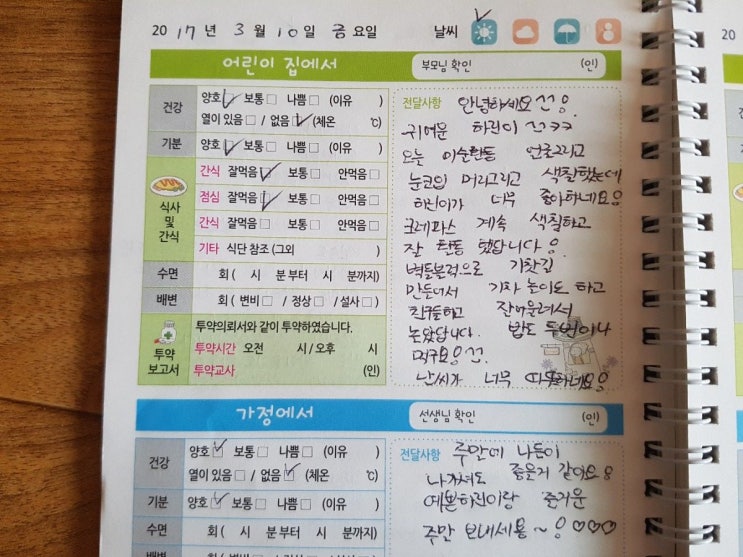 20 17년 3월 10일 금요일 날씨
어린이 집에서 부모님 확인 (인)
건강 양호□ 보통□ 나쁨□ (이유 )
열이 있음□ / 없음□ (체온 ℃)
기분 양호□ 보통□ 나쁨□ (이유 )
식사 및 간식
간식 잘먹음□ 보통□ 안먹음□
점심 잘먹음□ 보통□ 안먹음□
간식 잘먹음□ 보통□ 안먹음□
기타 식단 참조 (그외 )
수면 회 ( 시 분부터 시 분까지)
배변 회 ( 변비□ / 정상□ / 설사□ )
투약 보고서
투약의뢰서와 같이 투약하였습니다.
투약시간 오전 시 / 오후 시
투약교사 (인)
전달사항 안녕하세요
귀여운 하린이 ㅋㅋ
오늘 미술활동 얼굴그리고
눈코입 머리그리고 색칠했는데
하린이가 너무 좋아하네요
크레파스 계속 색칠하고
잘 활동 했답니다
벽돌블럭으로 기찻길
만들어서 기차 놀이도 하고
친구들하고 잘어울려서
놀았답니다. 밥도 두번이나
먹구요
날씨가 너무 따뜻하네요
가정에서 선생님 확인 (인)
건강 양호□ 보통□ 나쁨□ (이유 )
열이 있음□ / 없음□ (체온 ℃)
기분 양호□ 보통□ 나쁨□ (이유 )
수면 회 ( 시 분부터 시 분까지)
배변
전달사항 주말에 나들이
나가셔도 좋을거 같아요
예쁜하린이랑 즐거운
주말 보내세용~ ♡♡♡
20